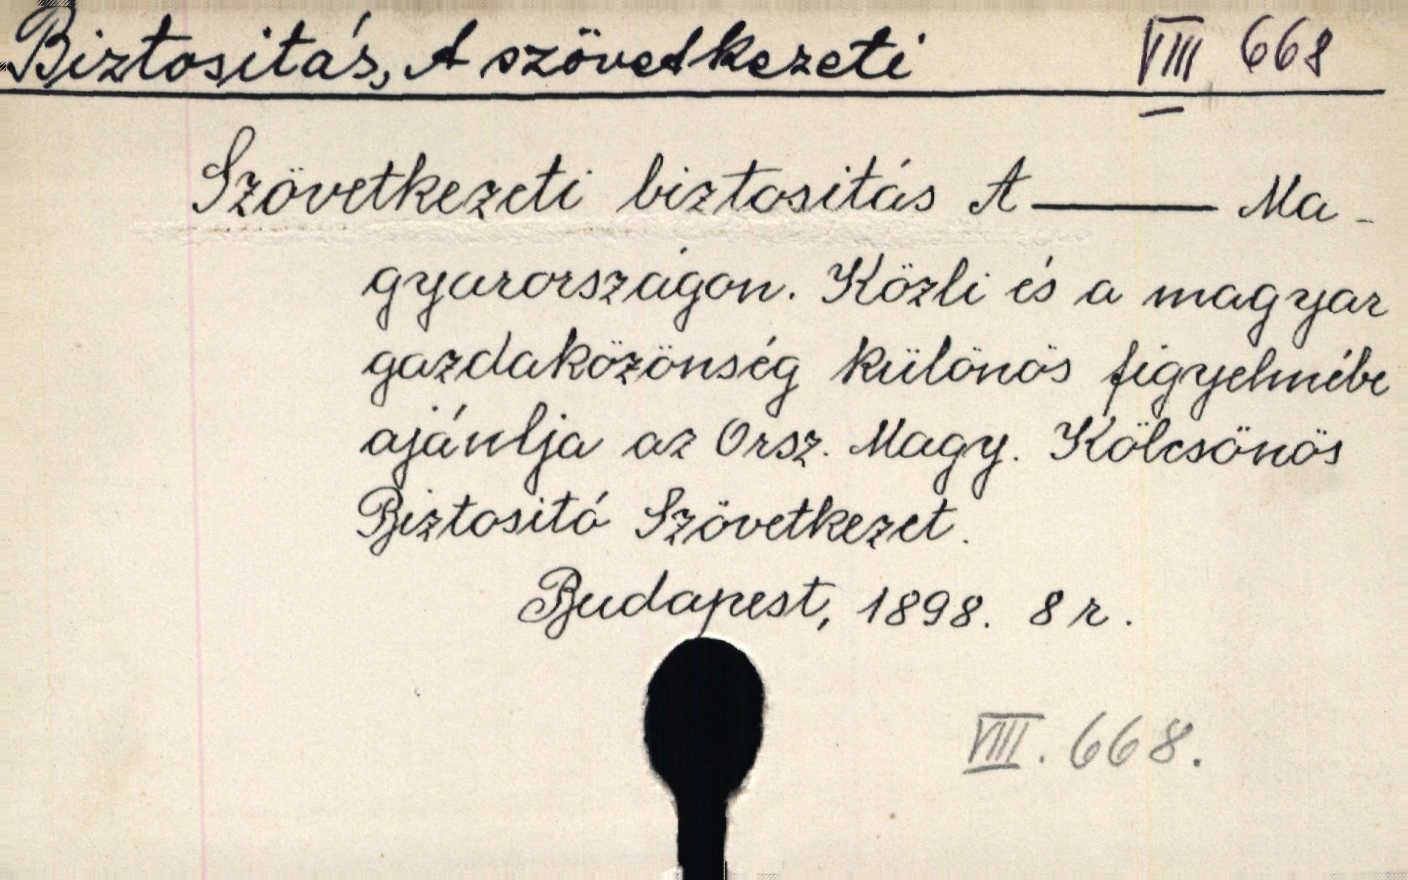 Biztositás, A szövetkezeti VIII 668
Szövetkezeti biztositás A —— Ma-
gyarországon. Közli és a magyar
gazdaközönség különös figyelmébe
ajánlja az Orsz. Magy. Kölcsönös
Biztositó Szövetkezet.
Budapest, 1898. 8r.
VIII. 668.